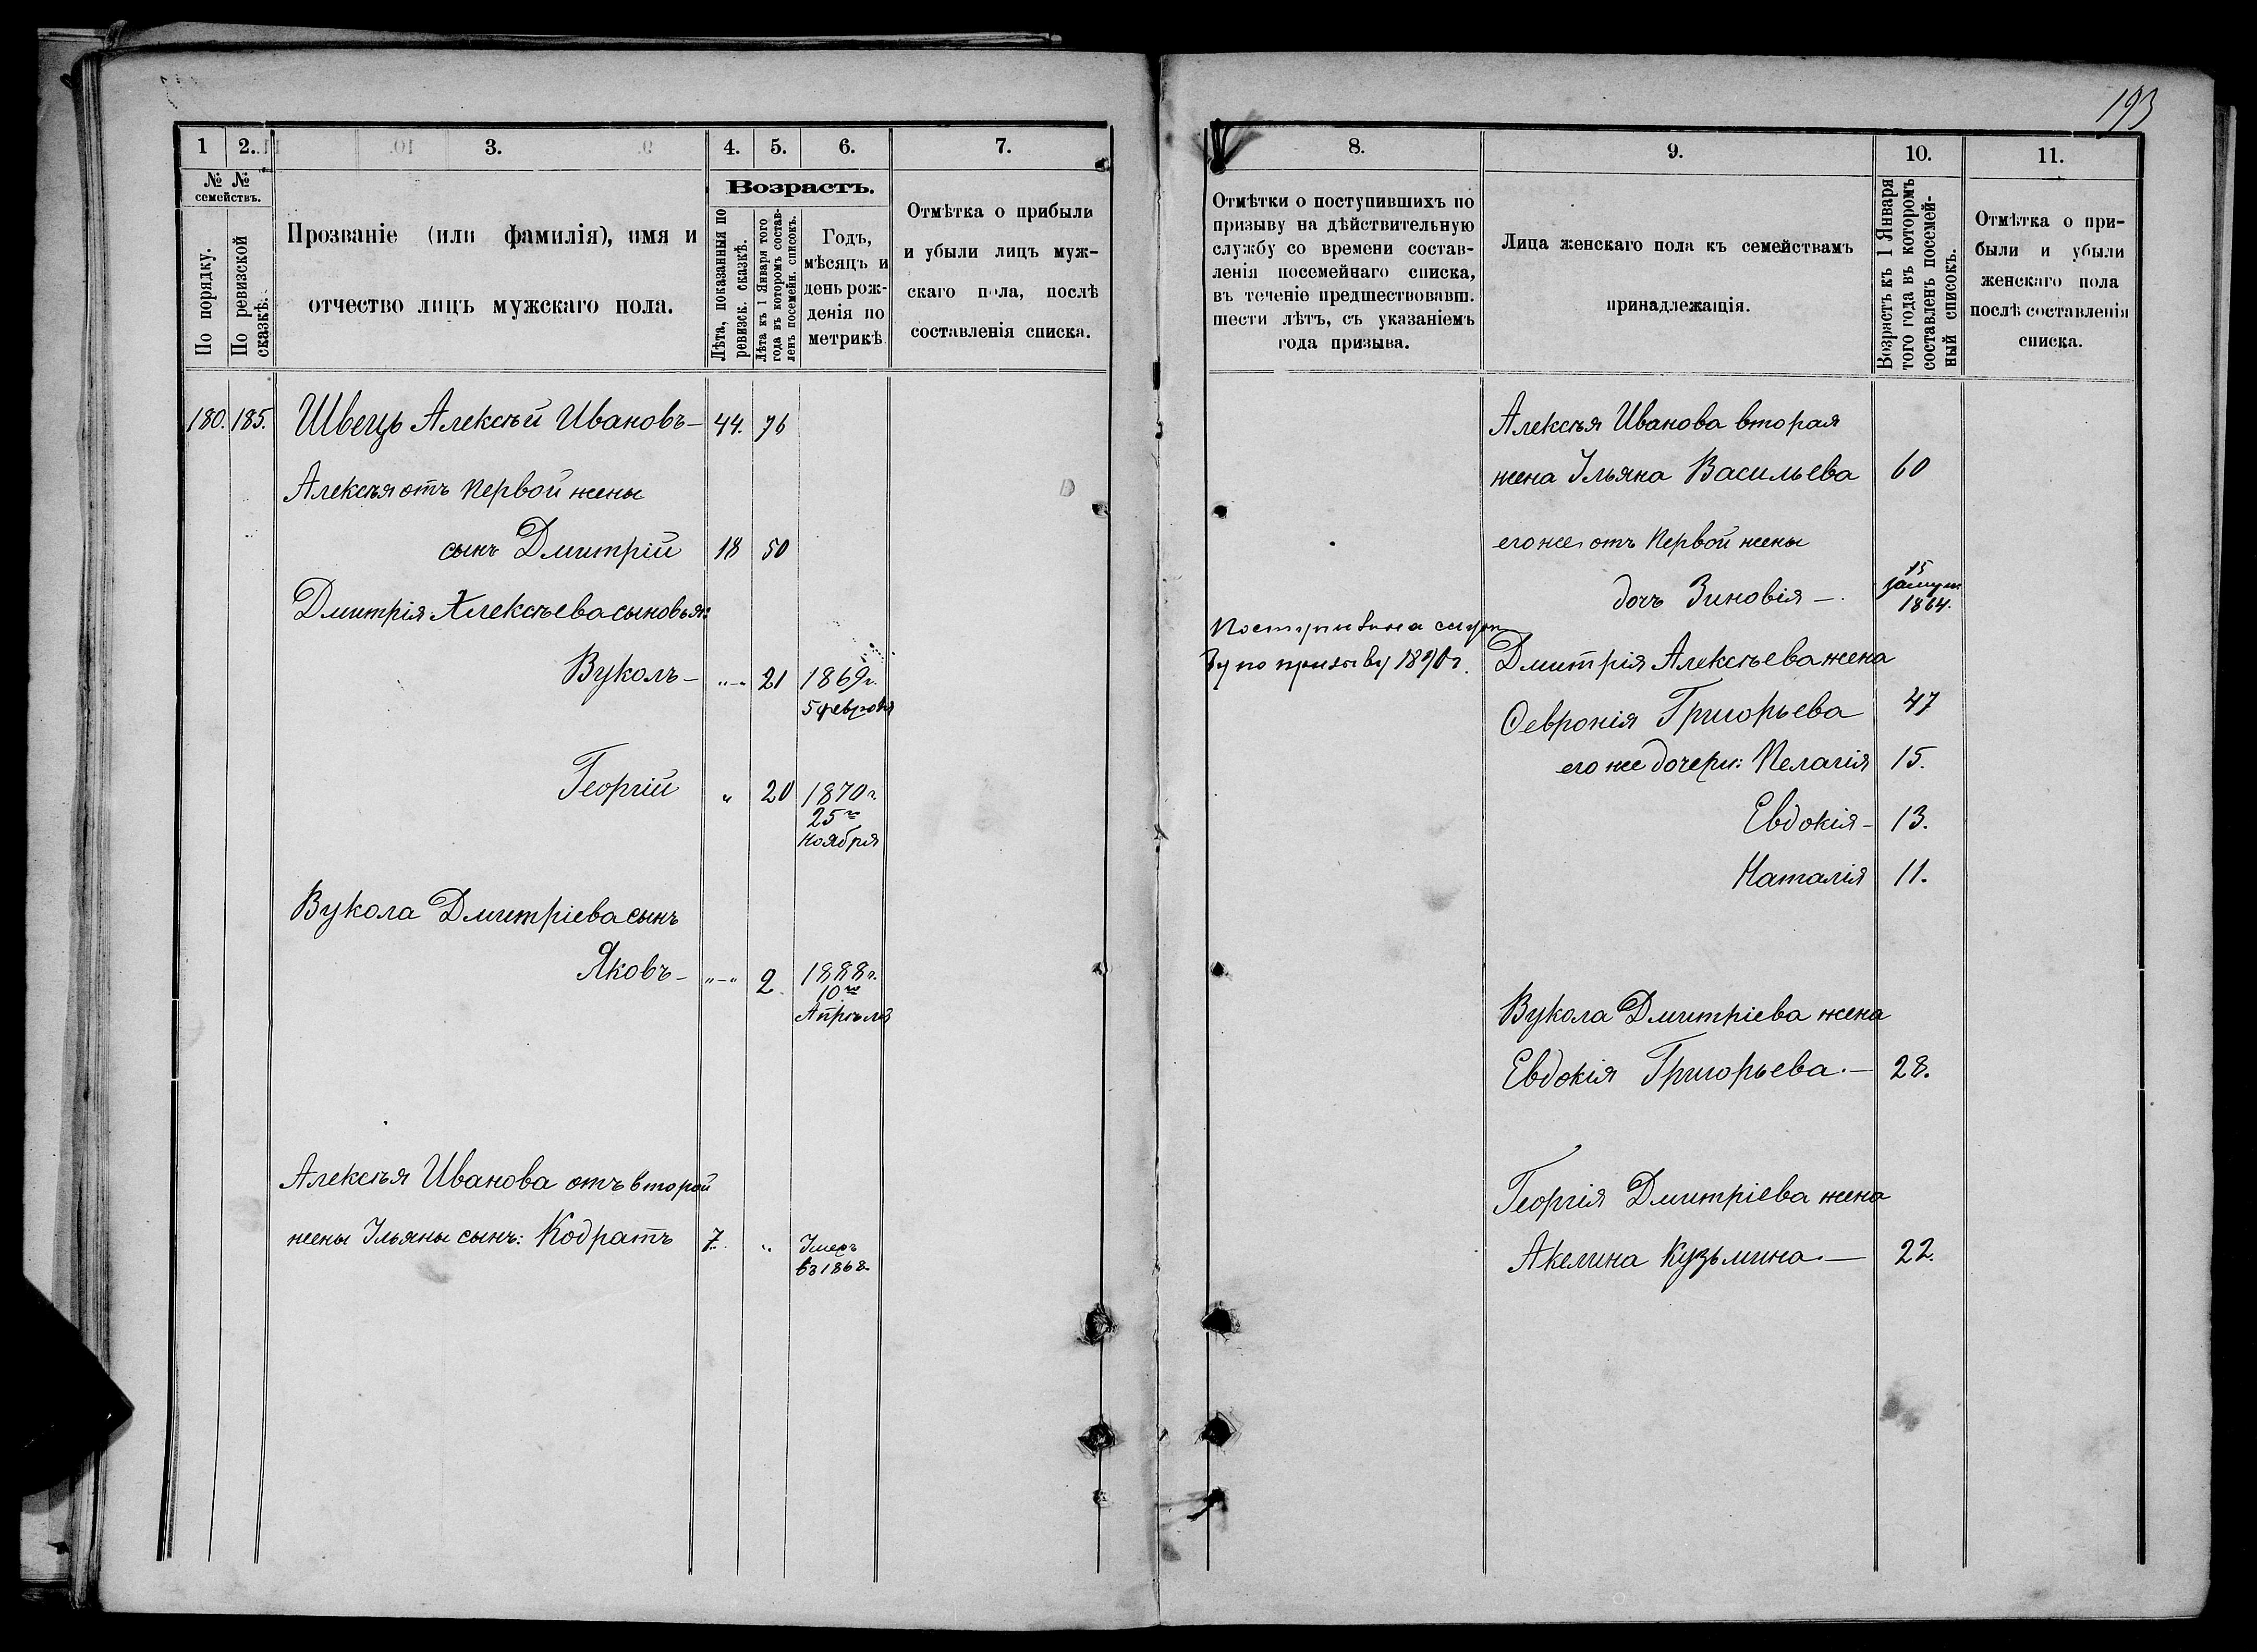 193
1
2.
3.
4.
5.
6.
7.
№ №
семействъ.
По порядку.
По ревизской
сказкѣ.
Прозваніе (или фамилія), имя и
отчество лицъ мужскаго пола.
Возрастъ.
Лѣта, показанныя по
ревизск. сказкѣ.
Лѣта къ 1 Января того
года въ которомъ состав-
ленъ посемейн. списокъ.
Годъ,
мѣсяцъ и
день рож-
денія по
метрикѣ
Отмѣтка о прибыли
и убыли лицъ муж-
скаго пола, послѣ
составленія списка.
180. 185. Швецъ Алексѣй Ивановъ — 44. 76
Алексѣя отъ первой жены
сынъ Дмитрій 18 50
Дмитрія Алексѣева сыновья:
Вуколъ — „—„ 21 1869г.
5 февраля
Георгій „ 20 1870 г.
25го
ноября
Вукола Дмитріева сынъ
Яковъ — „—„ 2. 1888 г.
10го
Апрѣля
Алексѣя Иванова отъ второй
жены Ульяны сынъ: Кодратъ 7. „ Умеръ
въ 1868.
8.
9.
10.
11.
Отмѣтки о поступившихъ по
призыву на дѣйствительную
службу со времени состав-
ленія посемейнаго списка,
въ теченіе предшествовавш.
шести лѣтъ, съ указаніемъ
года призыва.
Лица женскаго пола къ семействамъ
принадлежащія.
Возрастъ къ 1 Января
того года въ которомъ
составленъ посемей-
ный списокъ.
Отмѣтка о при-
были и убыли
женскаго пола
послѣ составленія
списка.
Алексѣя Иванова вторая
жена Ульяна Васильева 60
его же отъ первой жены
15
дочь Зиновія —. замуж.
1864.
на служ
бу по призыву 1890 г.
Дмитрія Алексѣева жена
Февронія Григорьева 47
его же дочери: Пелагія 15.
Евдокія — 13.
Наталія 11.
Вукола Дмитріева жена
Евдокія Григорьева. — 28.
Георгія Дмитріева жена
Акелина Кузьмина. — 22.